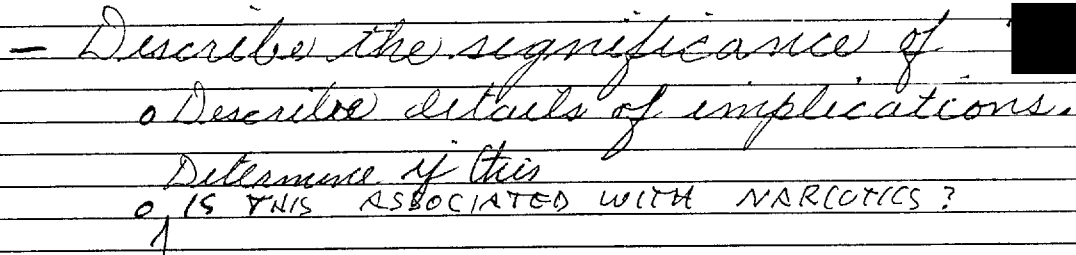 - Describe the significance of
o Describe details of implications.
Determine if this
o IS THIS ASSOCIATED WITH NARCOTICS?